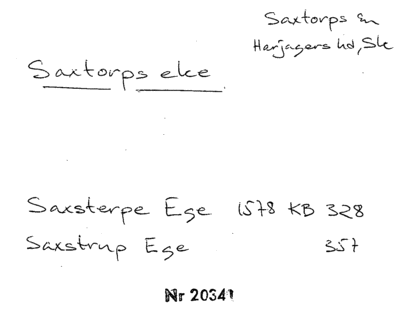 Saxtorps sn
Harjagers hd, Sk
Saxtorps eke
Saxsterpe Ege 1578 KB 328
Saxstrup Ege 357
Nr 20341